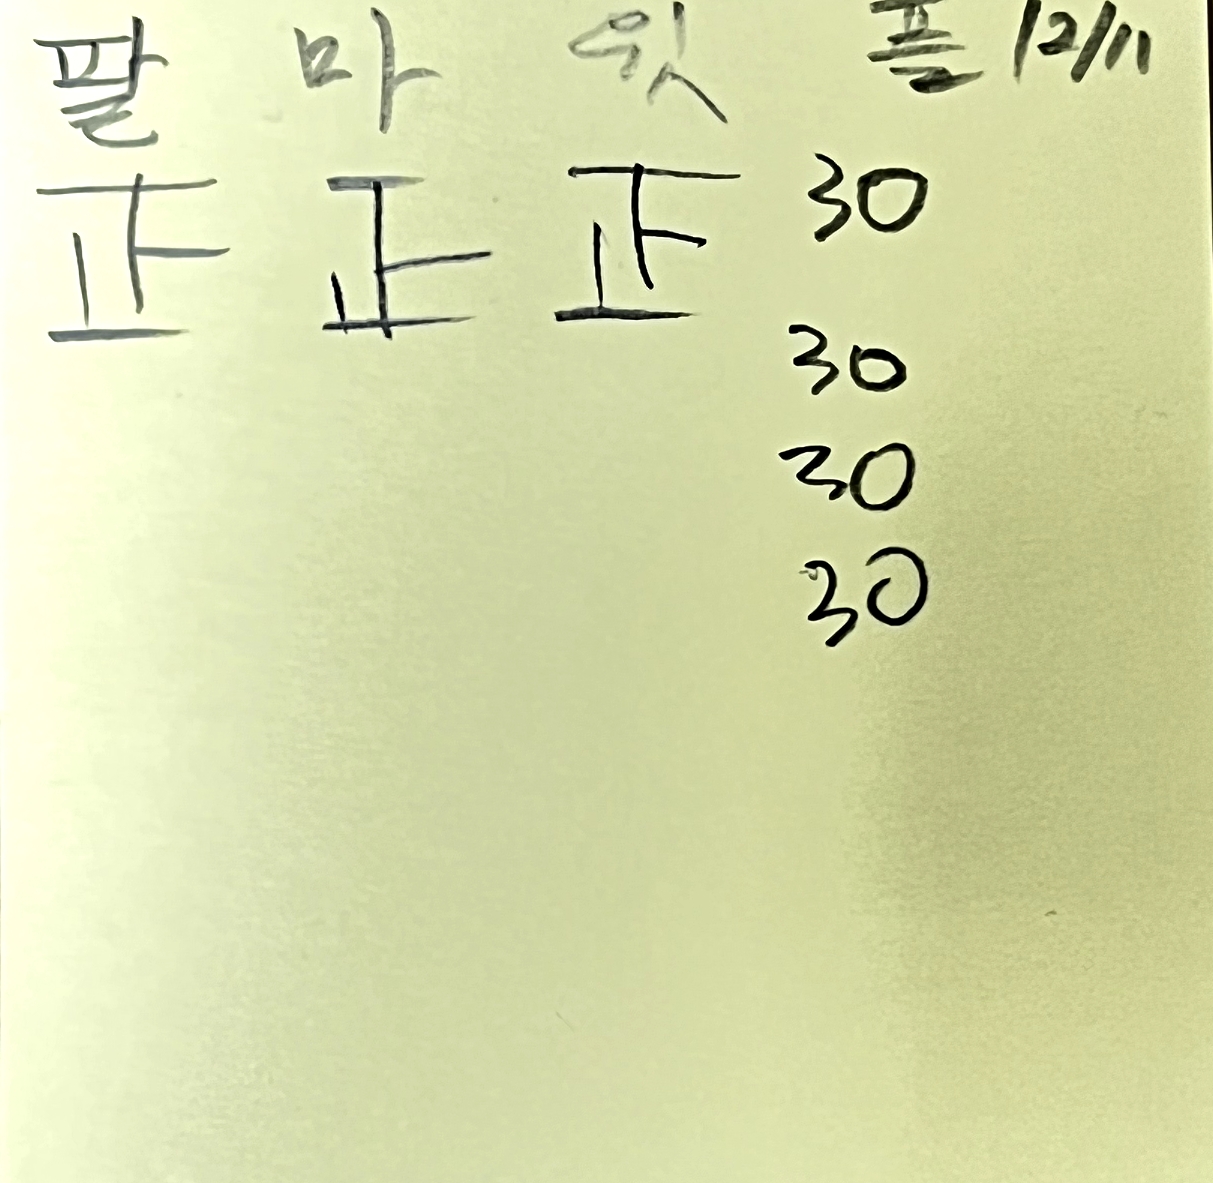 팔 마 윗 플 12/11
正 正 正 30
30
30
30